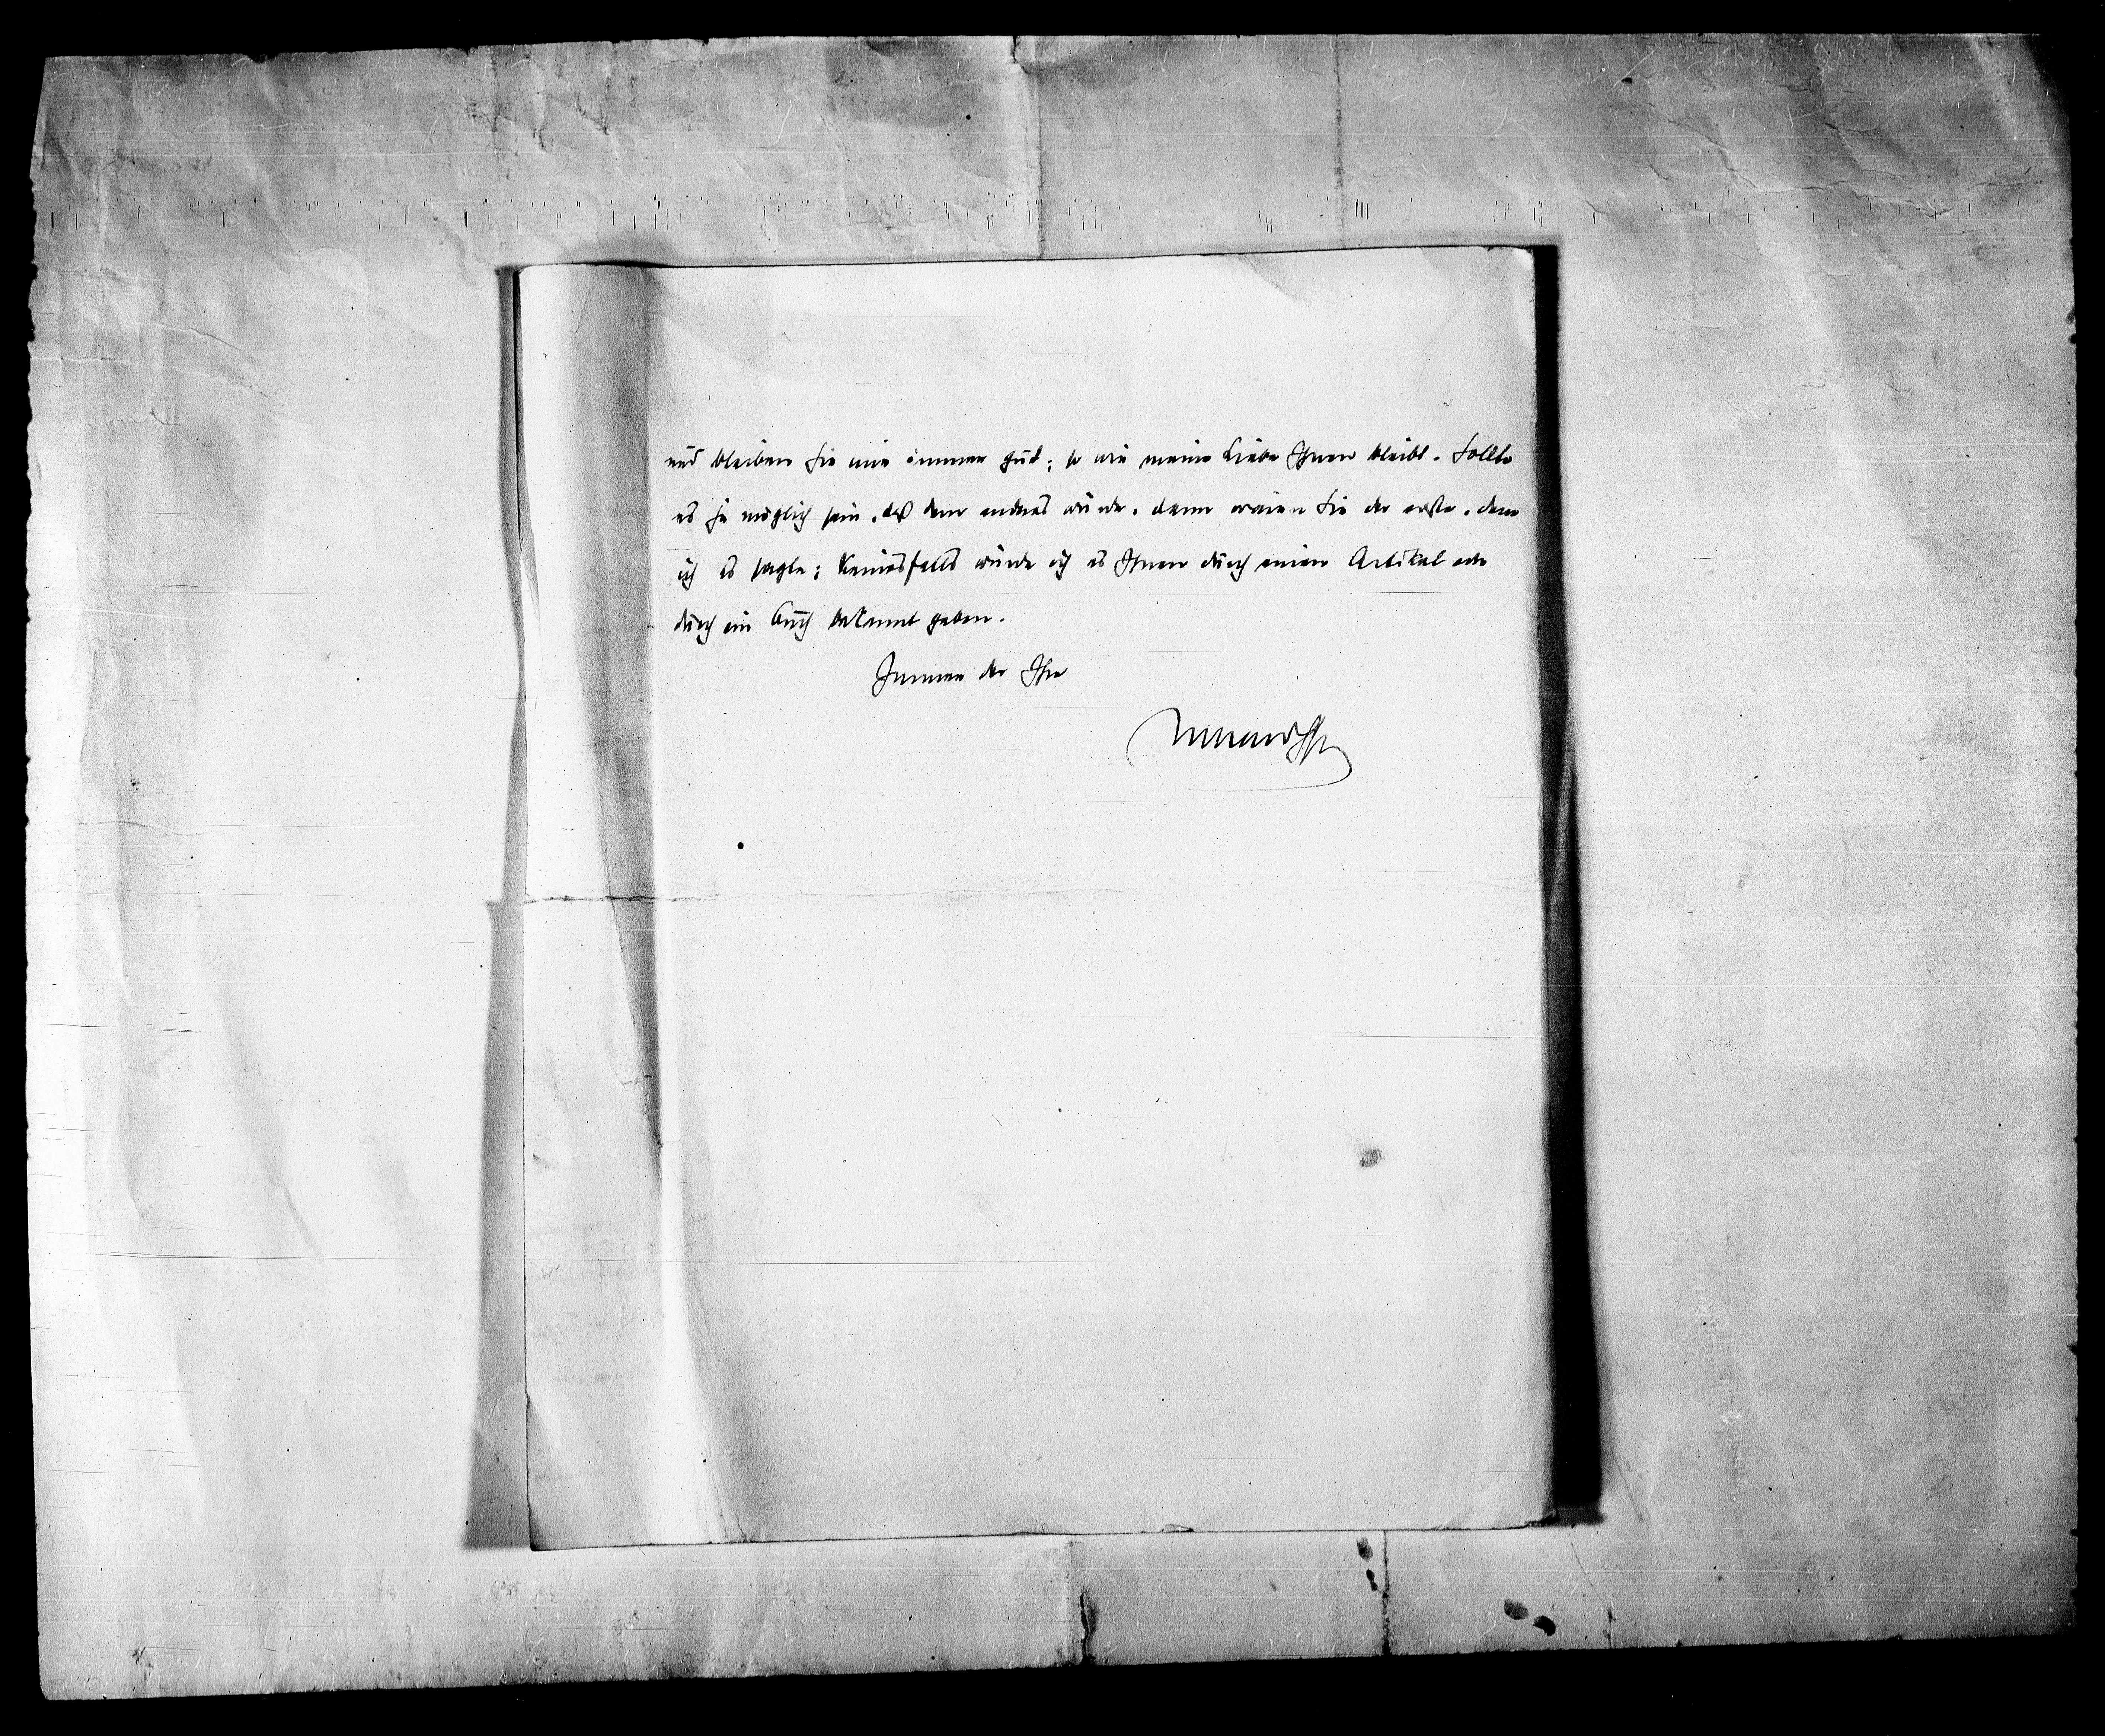 und bleiben Sie mir immer gut; so wie meine Liebe Ihnen bleibt. Sollte
es je möglich sein, daß dem anders würde, dann wären Sie der erste, dem
ich es sagte; keinesfalls würde ich es Ihnen durch einen Artikel oder
durch ein Buch bekannt geben.
Immer der Ihre